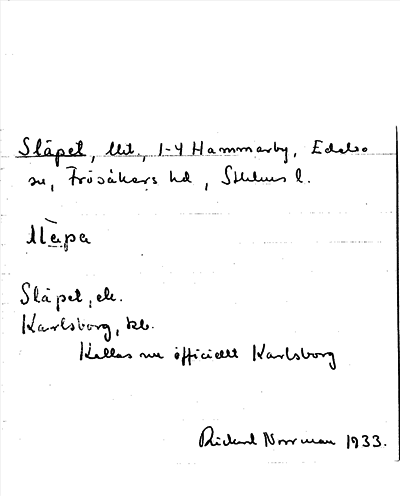 Släpet, lht., 1-4 Hammarby, Edebo
sn, Frösåkers hd, Sthlms l.
Släpet, ek.
Karlsborg, kb.
Kallas nu officiellt Karlsborg
Rickard Norrman 1933.